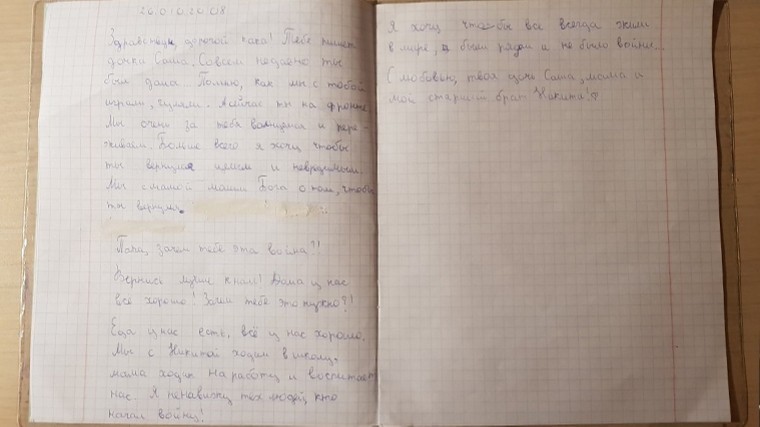 20.010.20.08
Здравствуй, дорогой папа! Тебе пишет
дочка Саша. Совсем недавно ты
был дома. Помню, как мы с тобой
играли, гуляли. А сейчас ты на фронте.
Мы очень за тебя волнуемся и пере-
живаем. Больше всего я хочу чтобы
ты вернулся целым и невредимым.
Мы с мамой молим Бога о том, чтобы
ты вернулся.
Папа, зачем тебе эта война?!
Вернись лучше к нам! Дома у нас
все хорошо! Зачем тебе это нужно?!
Еда у нас есть, всё у нас хорошо.
Мы с Никитой ходим в школу,
мама ходит на работу и воспитает
нас. Я ненавижу тех людей, кто
начал войну!
Я хочу чтобы все всегда жили
в мире, а были рядом и не было войны.
С любовью, твоя дочь Саша, мама и
мой старший брат Никита!